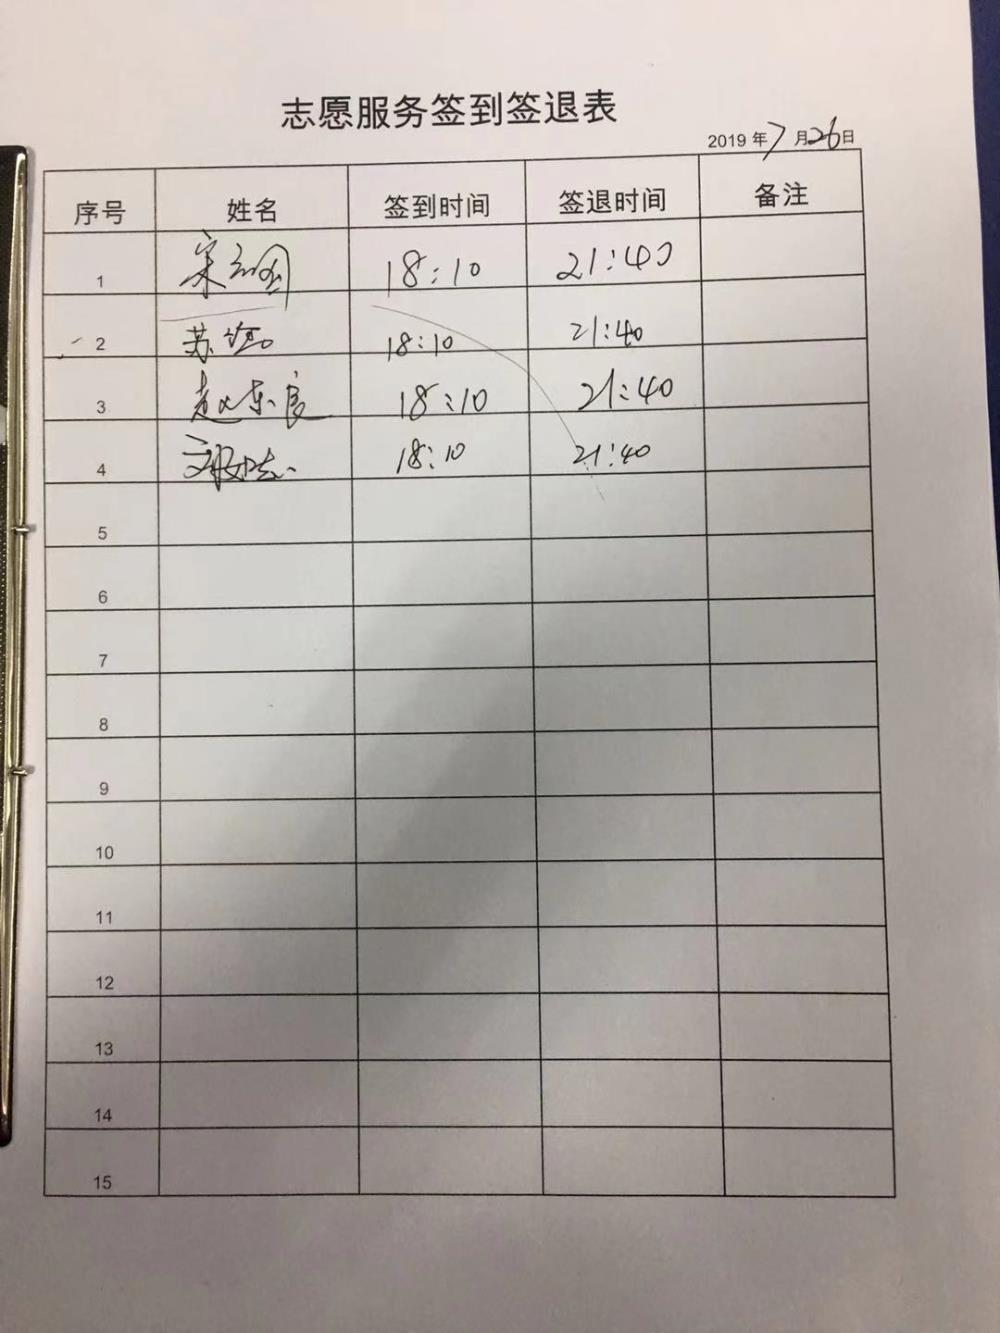 志愿服务签到签退表
2019年7月26日
序号 姓名 签到时间 签退时间 备注
1 宋 18:10 21:40
2 苏 18:10 21:40
3 赵东良 18:10 21:40
4 18:10 21:40
5
6
7
8
9
10
11
12
13
14
15